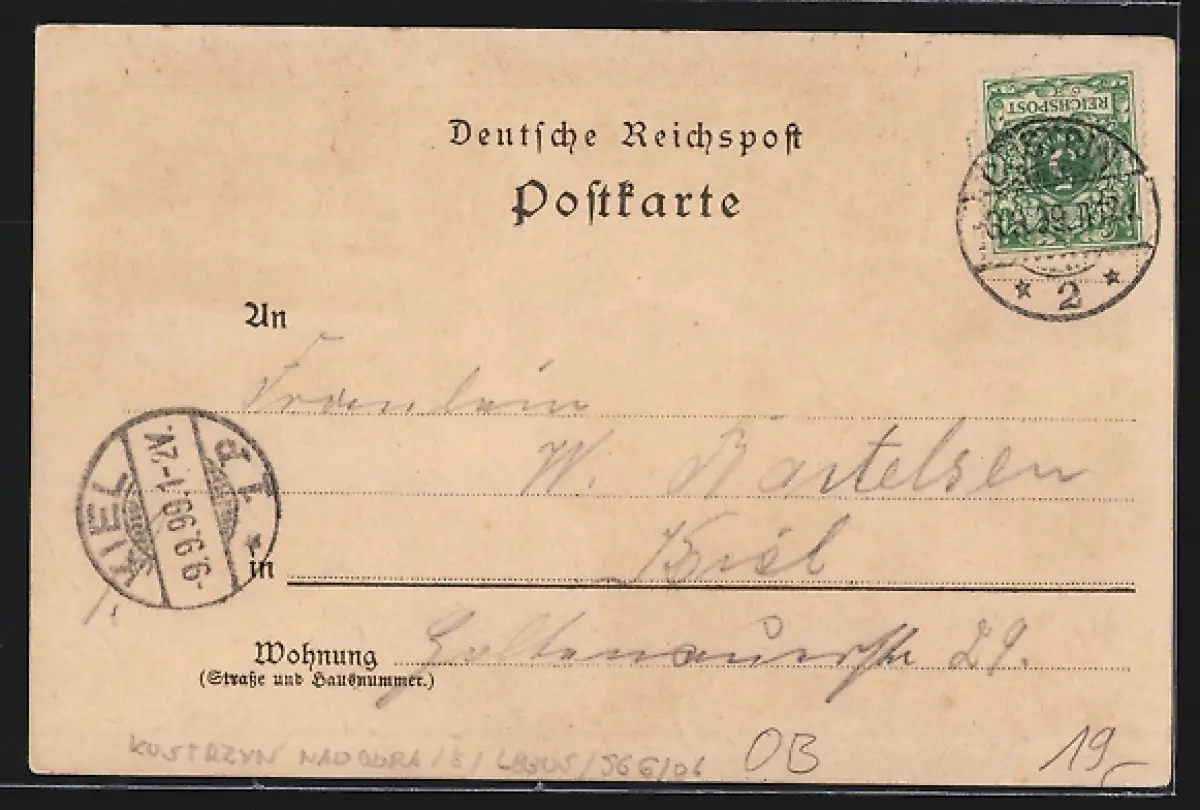 Deutsche Reichspost
Postkarte
REICHSPOST
5
CÜSTRIN
* 2 *
An
Fräulein
W. Bartelsen
in Kiel
KIEL
-9.9.99.1-2V.
d 1 *
Wohnung Holtenauerstr 29.
(Straße und Hausnummer.)
KOSTRZYN NAD ODRA /
OB
19,-